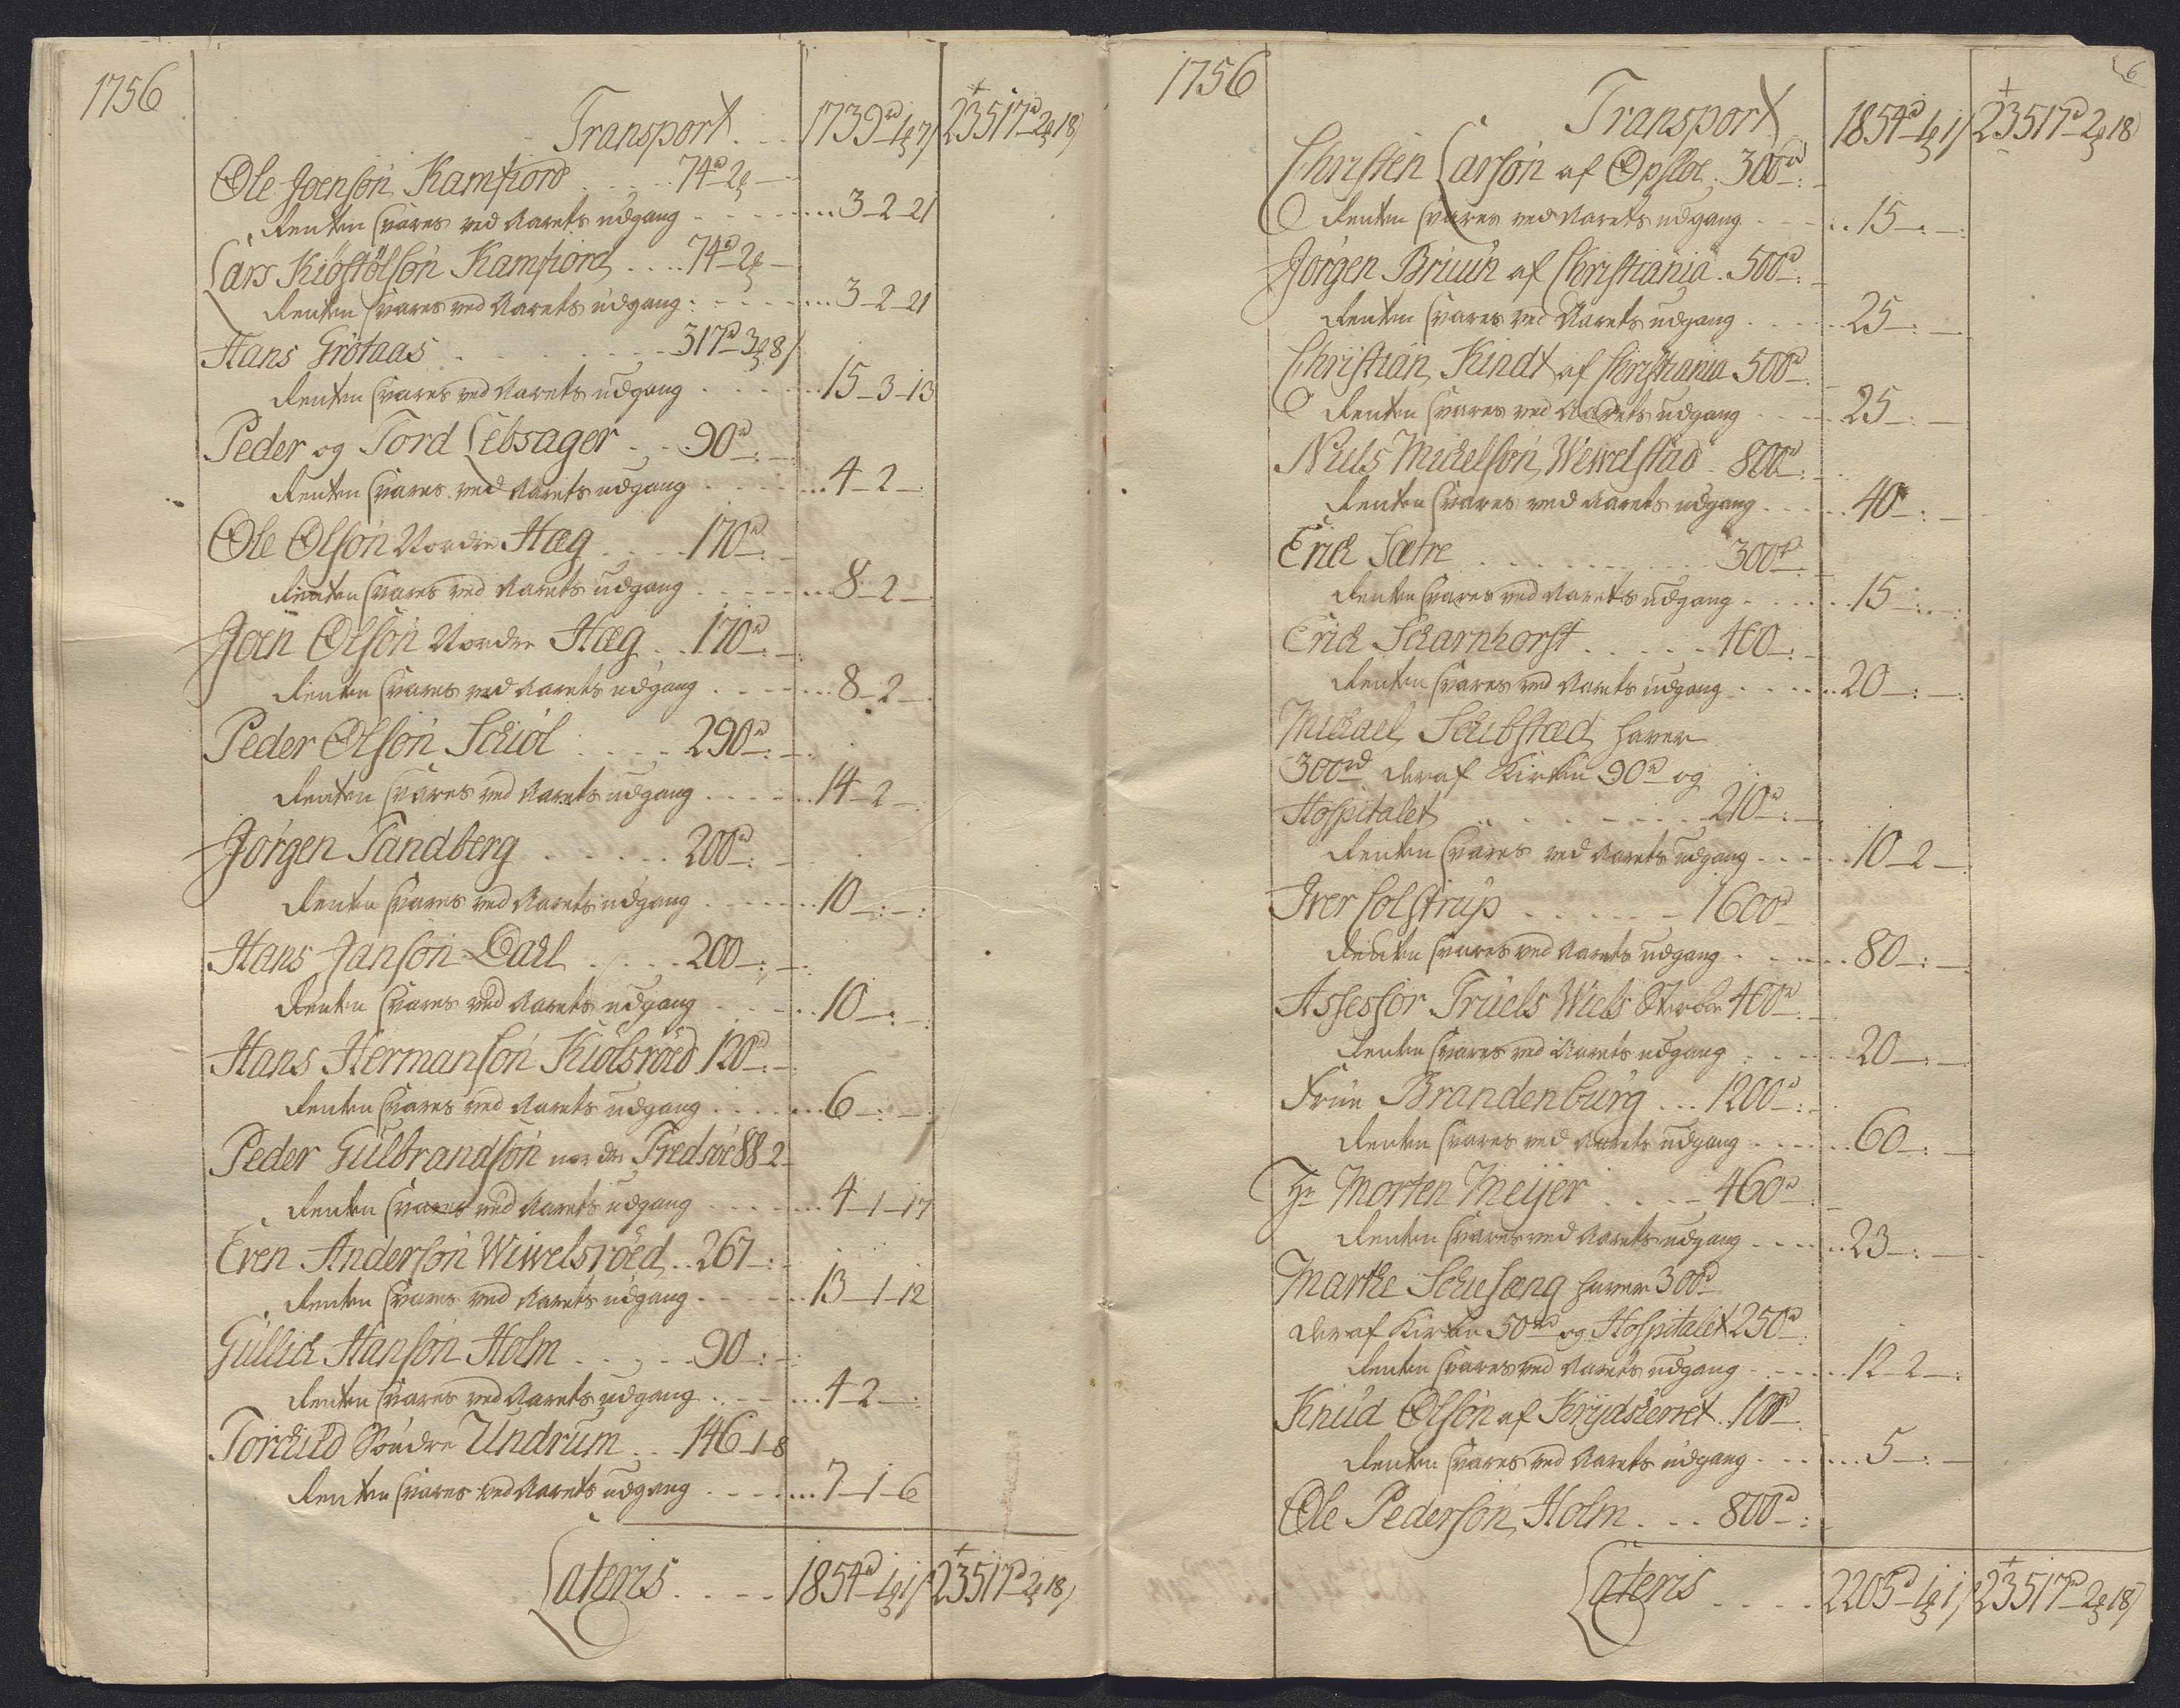 1756
Transport . . . 1739rd 1ꝣ 7ß 23517rd 2ꝣ 18ß
Ole Joensøn Kamfiord . . . . . 74rd 2ꝣ —
Renten svares ved Aarets udgang . . . . . . 3_2_21
Lars Kiøstølsøn Kamfiord . . . . 74rd 2ꝣ —
Renten svares ved Aarets udgang . . . . . . 3_2_21
Hans Grøtaas . . . . . . 317rd 3ꝣ 8ß
Renten svares ved Aarets udgang . . . . . . 15_3_13
Peder og Tord Lebsager . . 90rd_:_
Renten svares ved Aarets udgang . . . . . . 4_2_:
Ole Olsøn Nordre Hæg . . . . 170rd_:_
Renten svares ved Aarets udgang . . . . . . 8_2_
Joen Olsøn Nordre Hæg . . 170rd_:_
Renten svares ved Aarets udgang . . . . . . 8_2_:
Peder Olsøn Schiøl . . . . 290rd_:_
Renten svares ved Aarets udgang . . . . . . 14_2_:
Jørgen Sandberg . . . . . . 200rd_:_
Renten svares ved Aarets udgang . . . . . . 10_:_:
Hans Jansøn Dahl . . . . 200_:_
Renten svares ved Aarets udgang . . . . . 10_:_:
Hans Hermansøn Kiølsrød 120rd_:_
Renten svares ved Aarets udgang . . . . . . 6_:_
Peder Gulbrandsøn nordre Fredsøe 88_2_
Renten svares ved Aarets udgang . . . . . . 4_1_17
Even Andersøn Wiwelsrøed . . 267_:_
Renten svares ved Aarets udgang . . . . . . 13_1_12
Gullich Hansøn Holm . . . . 90_:_
Renten svares ved Aarets udgang . . . . . . 4_2_:
Torchild Søndre Undrum . . . 146_1_8
Renten svares ved Aarets udgang . . . . . . 7_1_6
Lateris . . . . 1854rd 1ꝣ 1ß 23517rd 2ꝣ 18ß
1756
6
Transport 1854rd 1ꝣ 1ß 23517rd 2ꝣ 18ß
Christen Larsøn af Opsloe . 300rd_:_
Renten svares ved Aarets udgang . . . . 15_:_:
Jørgen Bruun af Christiania . 500rd_:_
Renten svares ved Aarets udgang . . . . . 25_:_
Christian Kindt af Christiania 500rd_:_
Renten svares ved Aarets udgang . . . . 25_:_
Niels Michelsøn Wiwelstad . 800rd_:_
Renten svares ved Aarets udgang . . . . . 40_:_
Erich Sætre . . . . . . . . 300rd_:_
Renten svares ved Aarets udgang . . . . . 15_:_:
Erich Scharnhorst . . . . . 400_:_
Renten svares ved Aarets udgang . . . . . 20_:_:
Michael Schibstad haver
300rd deraf Kirken 90rd og
Hospitalet . . . . . . 210rd_:_
Renten svares ved Aarets udgang . . . . . 10_2_:
Iver Colstrup . . . . . . 1600rd
Renten svares ved Aarets udgang . . . . . 80_:_
Assessor Truels Wiels 400rd_:_
Renten svares ved Aarets udgang . . . . . 20_:_
Frue Brandenburg . . . 1200rd_:_
Renten svares ved Aarets udgang . . . . . 60_:_
Hr Morten Meijer . . . . 460rd_:_
Renten svares ved Aarets udgang . . . . . 23_:_
Marthe Schiesæng haver 300rd
deraf Kirken 50rd og Hospitalet 250rd_:
Renten svares ved Aarets udgang . . . . . 12_2_:
Knud Olsøn af . . 100rd_
Renten svares ved Aarets udgang . . . . . 5_:_
Ole Pedersøn Holm . . . 800rd_:_
Lateris . . . . 2205rd 1ꝣ 1ß 23517rd 2ꝣ 18ß